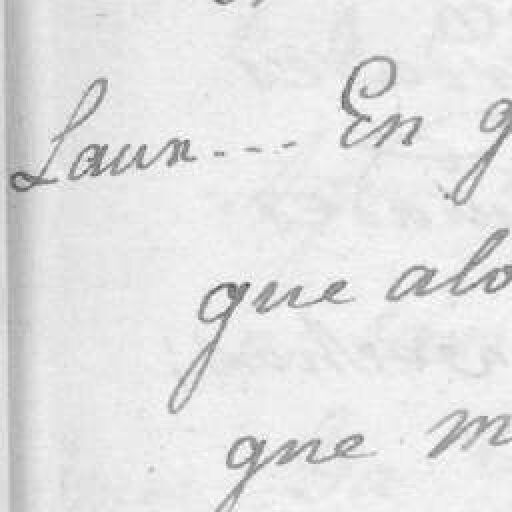 Laun --- En g
que alo
que m